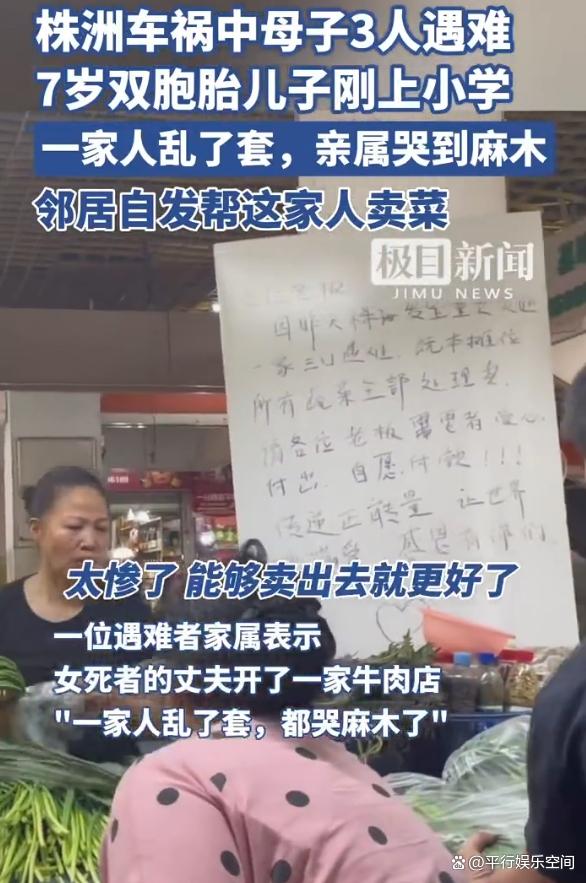 株洲车祸中母子3人遇难
7岁双胞胎儿子刚上小学
一家人乱了套，亲属哭到麻木
邻居自发帮这家人卖菜
极目新闻
JIMU NEWS
因昨天株洲发生重大
一家三口遇难
所有蔬菜全部处理卖
请各位老板 献爱心
付出 自愿付款！！！
传递正能量 让世界
感恩有你们
太惨了 能够卖出去就更好了
一位遇难者家属表示
女死者的丈夫开了一家牛肉店
"一家人乱了套，都哭麻木了"
@平行娱乐空间